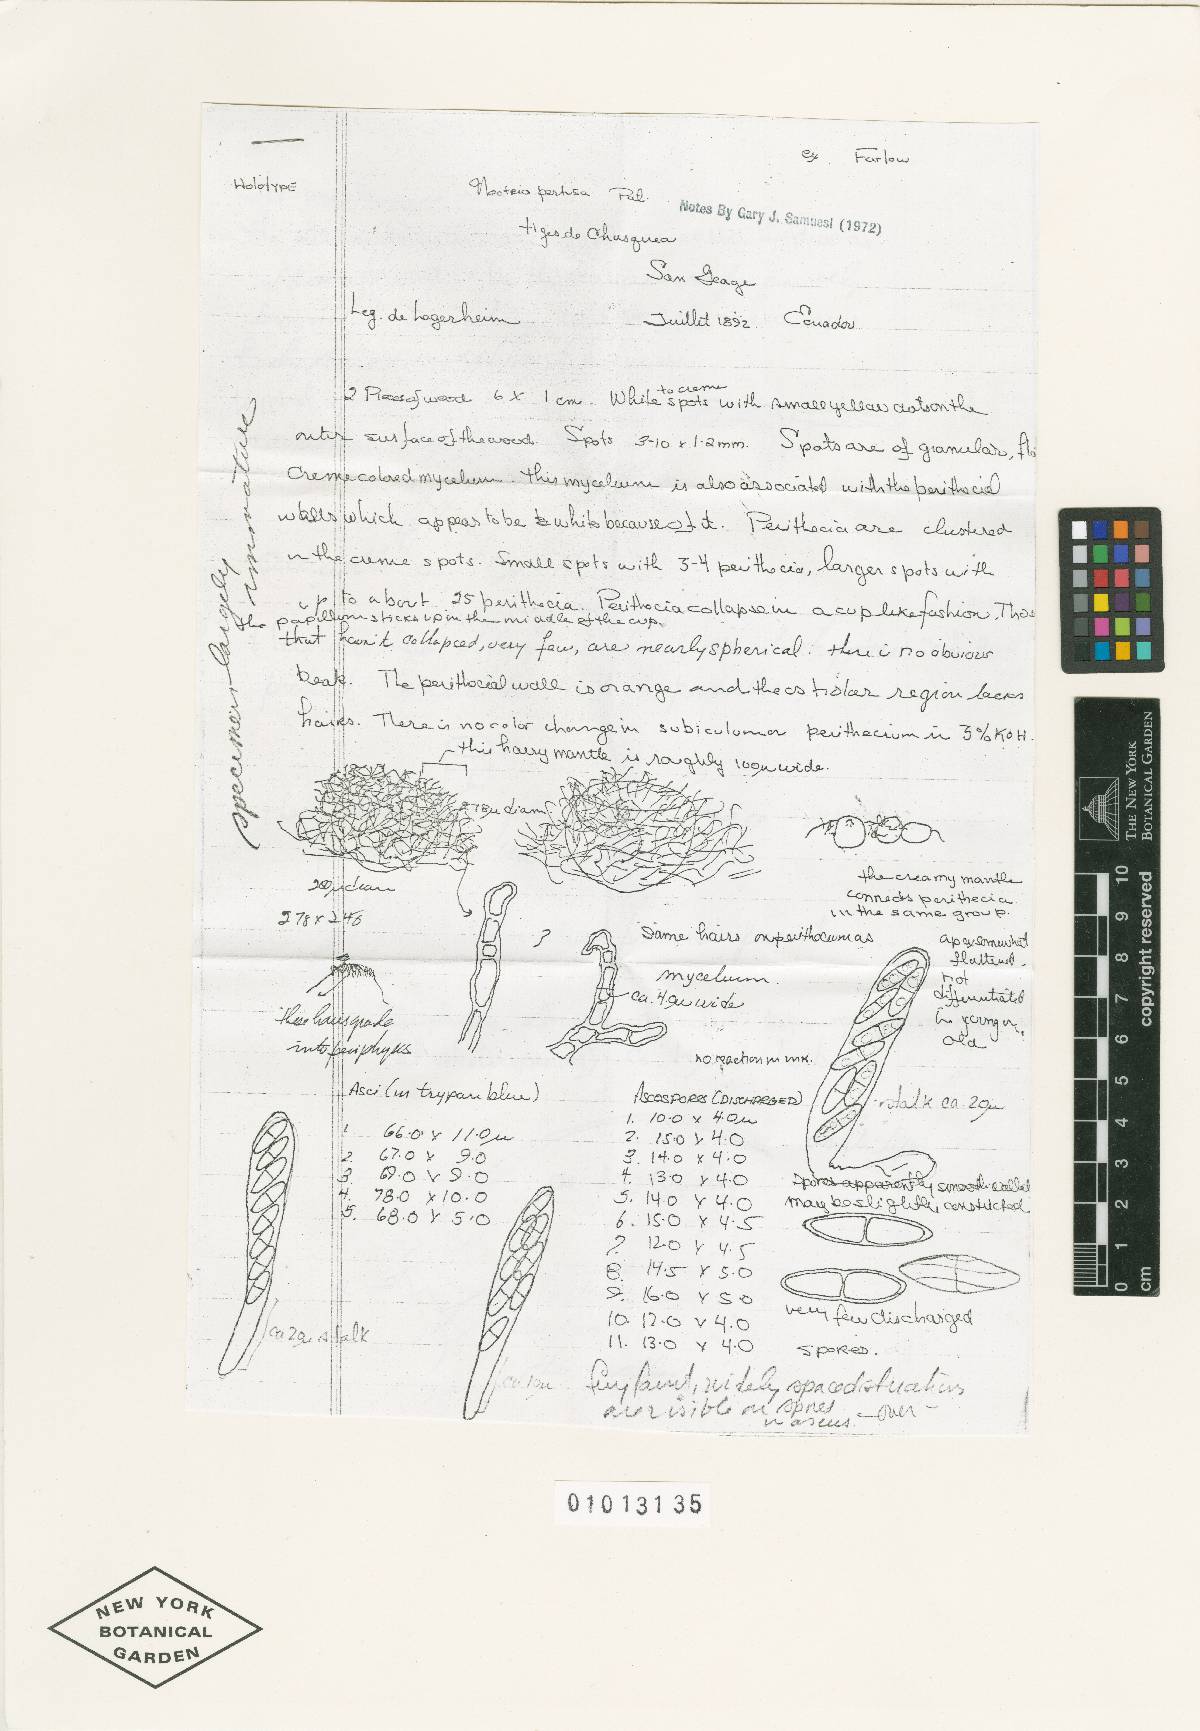 ex. Farlow
Holotype
pertusa Pat.
Notes By Gary J. Samuesl (1972)
tiges de Chusquea
San Geage
Leg. de Lagerheim Juillet 1892. Ecuador
2 Pieces of wood 6 x 1 cm. White to creme spots with small yellow dots on the
outer surface of the wood. Spots 3-10 x 1-2 mm. Spots are of granular, flo
creme colored mycelium. This mycelium is also associated with the perithecial
walls which appears to be white because of it. Perithecia are clustered
in the creme spots. Small spots with 3-4 perithecia, larger spots with
up to about 25 perithecia. Perithecia collapse in a cup like fashion. Thos
the papillum sticks up in the middle of the cup.
that haven't collapsed, very few, are nearly spherical. there is no obvious
beak. The perithecial wall is orange and the ostiolar region lacks
hairs. There is no color change in subiculum or perithecium in 3% KOH.
specimen largely
immature
this hairy mantle is roughly 100µ wide.
278µ diam
200µ diam
278 x 246
the creamy mantle
connects perithecia
in the same group.
?
Same hairs on perithecium as
mycelium.
ca. 4.0µ wide
apex somewhat
flattened.
not
differentiated
in younger or
old
these hairs grade
into periphyses
no reaction in
Asci (in trypan blue)
1. 66.0 x 11.0µ
2. 67.0 x 9.0
3. 69.0 x 9.0
4. 78.0 x 10.0
5. 68.0 x 5.0
Ascospores (DISCHARGED)
1. 10.0 x 4.0µ
2. 15.0 x 4.0
3. 14.0 x 4.0
4. 13.0 x 4.0
5. 14.0 x 4.0
6. 15.0 x 4.5
7. 12.0 x 4.5
8. 14.5 x 5.0
9. 16.0 x 5.0
10. 12.0 x 4.0
11. 13.0 x 4.0
stalk ca. 20µ
Spores apparently smooth walled
may be slightly constricted
very few discharged
spores.
ca 20µ stalk
ca 10µ
Very faint, widely spaced striations
are visible on spores
in ascus. -over-
01013135
NEW YORK
BOTANICAL
GARDEN
THE NEW YORK
BOTANICAL GARDEN
10
9
8
7
6
5
4
3
2
1
0
cm
copyright reserved